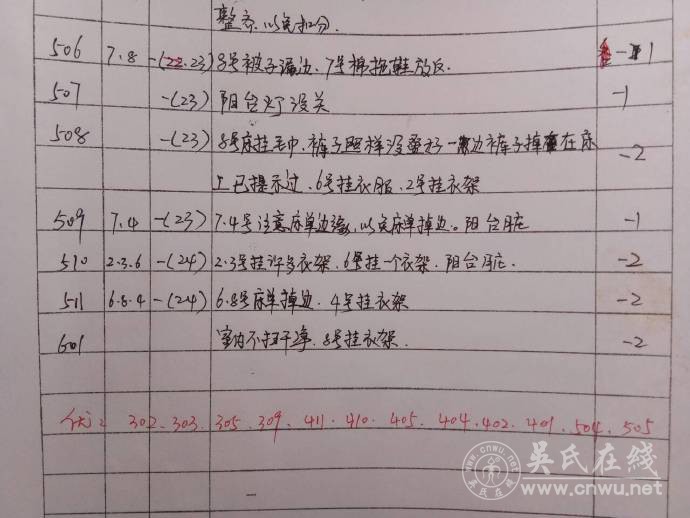 整齐,以免扣分.
506 7.8 -(22.23) 8号被子漏边、7号棉拖鞋放反. -1
507 -(23) 阳台灯没关 -1
508 -(23) 8号床挂毛巾、裤子照样没叠好一边裤子掉在床 -2
上已提示过、6号挂衣服、2号挂衣架
509 7.4 -(23) 7.4号注意床单边缘,以免床单掉边。阳台脏 -1
510 2.3.6 -(24) 2.3号挂许多衣架、6号挂一个衣架、阳台脏. -2
511 6.8.4 -(24) 6.8号床单掉边、4号挂衣架 -2
601 室内不扫干净、8号挂衣架. -2
优: 302、303、305、309、411、410、405、404、402、401、504、505
吴氏在線
www.cnwu.net